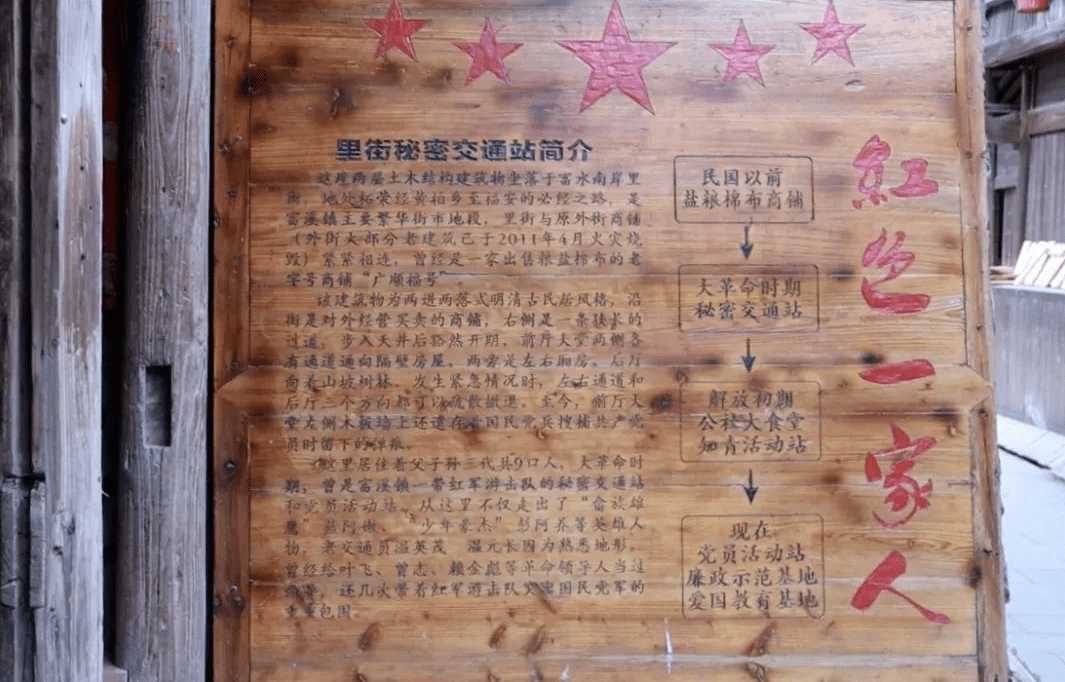 里街秘密交通站简介
这座两层土木结构建筑物坐落于富水南岸里
街，地处柘荣经黄柏乡至福安的必经之路，是
富溪镇主要繁华街市地段，里街与原外街商铺
（外街大部分老建筑已于2011年4月火灾烧
毁）紧紧相连，曾经是一家出售粮盐棉布的老
字号商铺“广顺福号”
该建筑物为两进两落式明清古民居风格，沿
街是对外经营买卖的商铺，右侧是一条狭长的
过道，步入天井后豁然开朗，前厅大堂两侧各
有通道通向隔壁房屋，两旁是左右厢房，后厅
向着山坡树林。发生紧急情况时，左右通道和
后厅三个方向都可以疏散撤退。至今，前厅大
堂左侧木板墙上还遗存着国民党兵搜捕共产党
员时留下的弹痕。
这里居住着父子孙三代共9口人，大革命时
期，曾是富溪镇一带红军游击队的秘密交通站
和党员活动站，从这里不仅走出了“畲族雄
鹰”蓝阿嫩、“少年豪杰”彭阿乔等英雄人
物，老交通员温英茂 温元长因为熟悉地形，
曾经给叶飞、曾志、赖金彪等革命领导人当过
向导，还几次带着红军游击队突出国民党军的
重重包围。
民国以前
盐粮棉布商铺
大革命时期
秘密交通站
解放初期
公社大食堂
知青活动站
现在
党员活动站
廉政示范基地
爱国教育基地
红色一家人